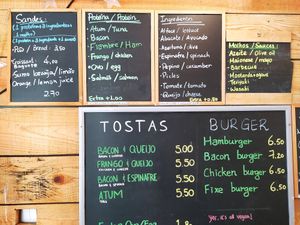 Sandes:
Pão / bread : 3,50
Croissant
Baguete 4,00
Sumo laranja / limão
Orange / lemon juice
2.70
Proteína / Protein:
Atum / Tuna
Bacon
Fiambre / Ham
Frango / Chicken
Ovo / egg
Salmão / salmon
Extra + 1.00
Ingredients:
Alface / lettuce
Abacate / Avocado
Azeitona / olive
Espinafre / spinach
Pepino / cucumber
Picles
Tomate / tomato
Queijo / cheese
Molhos / Sauces:
Azeite / Olive oil
Maionese / mayo
Barbecue
Mostarda
Teriyaki
Wasabi
TOSTAS
BACON + QUEIJO 5.00
FRANGO + QUEIJO 5.50
BACON + ESPINAFRE 5.50
ATUM 5.50
BURGER
Hamburger 6.50
Bacon burger 7.20
Chicken burger 6.50
Fixe burger 6.50
yes, it's all vegan!